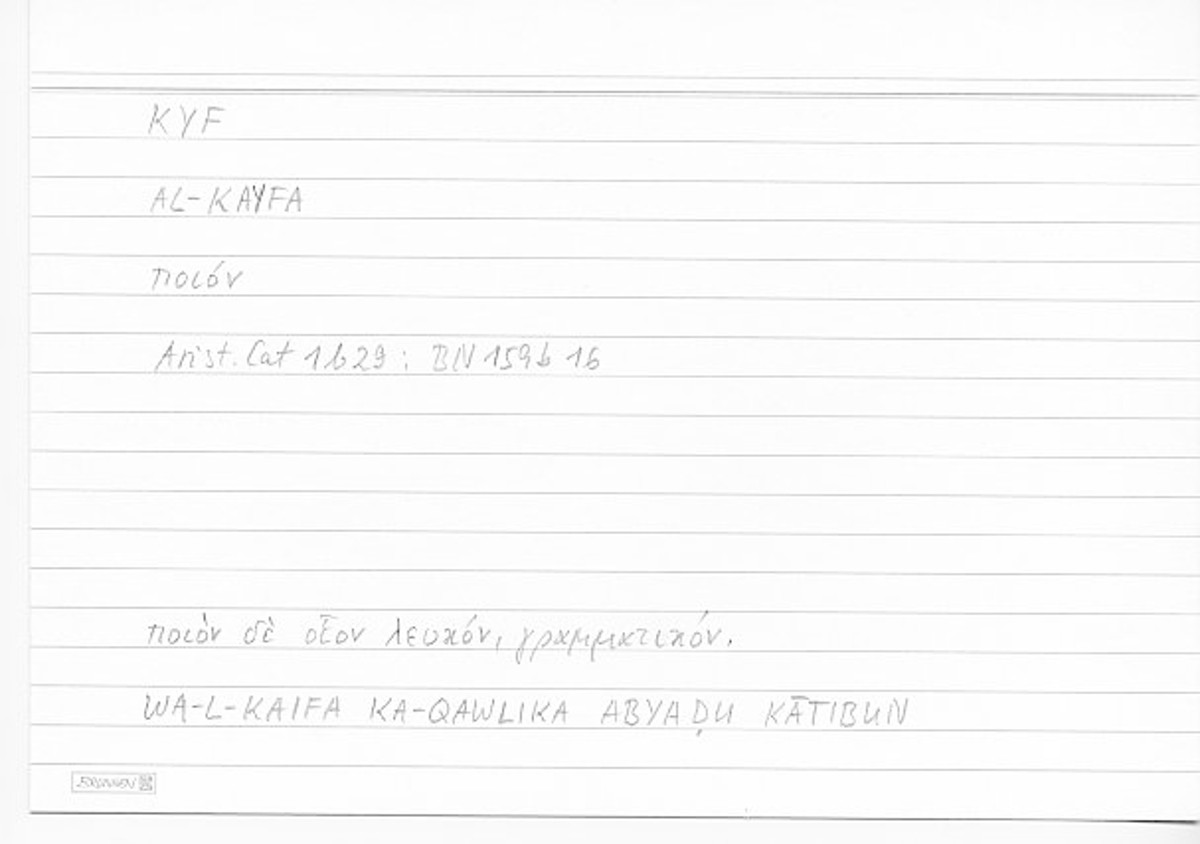 KYF
AL-KAYFA
ποιόν
Arist. Cat 1b29 : BN 159b 16
ποιὸν δὲ οἷον λευκόν, γραμματικόν.
WA-L-KAIFA KA-QAWLIKA ABYAḌU KĀTIBUN
BRUNNEN